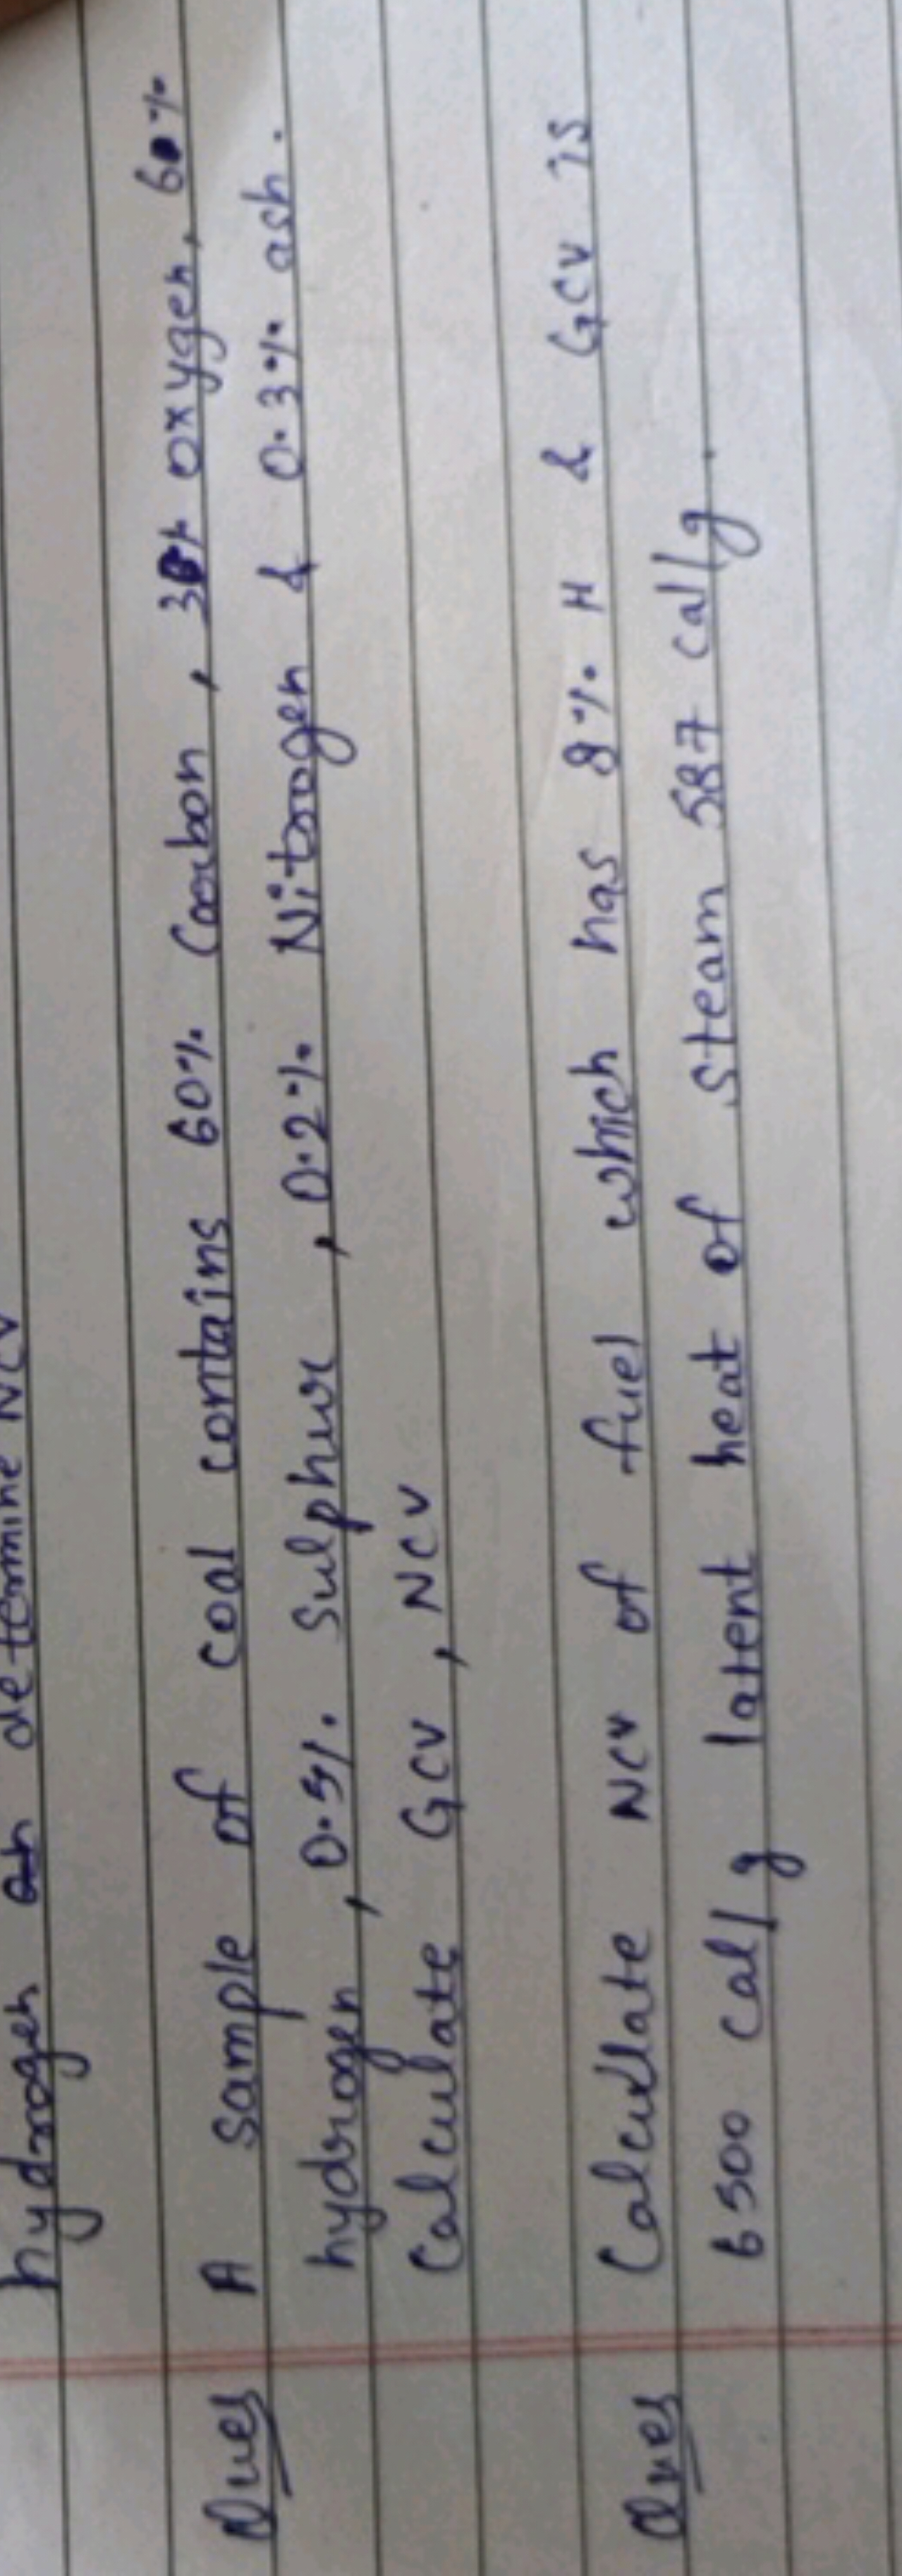 hydrogen determine NCV
Ques A sample of coal contains 60% Carbon, oxygen,
hydrogen, Sulphur, 0.2% Nitrogen & 0.3% ash.
Calculate GCV, NCV
Ques Calculate NCV of fuel which has 8% H & GCV is
6500 cal/g latent heat of steam 587 cal/g.